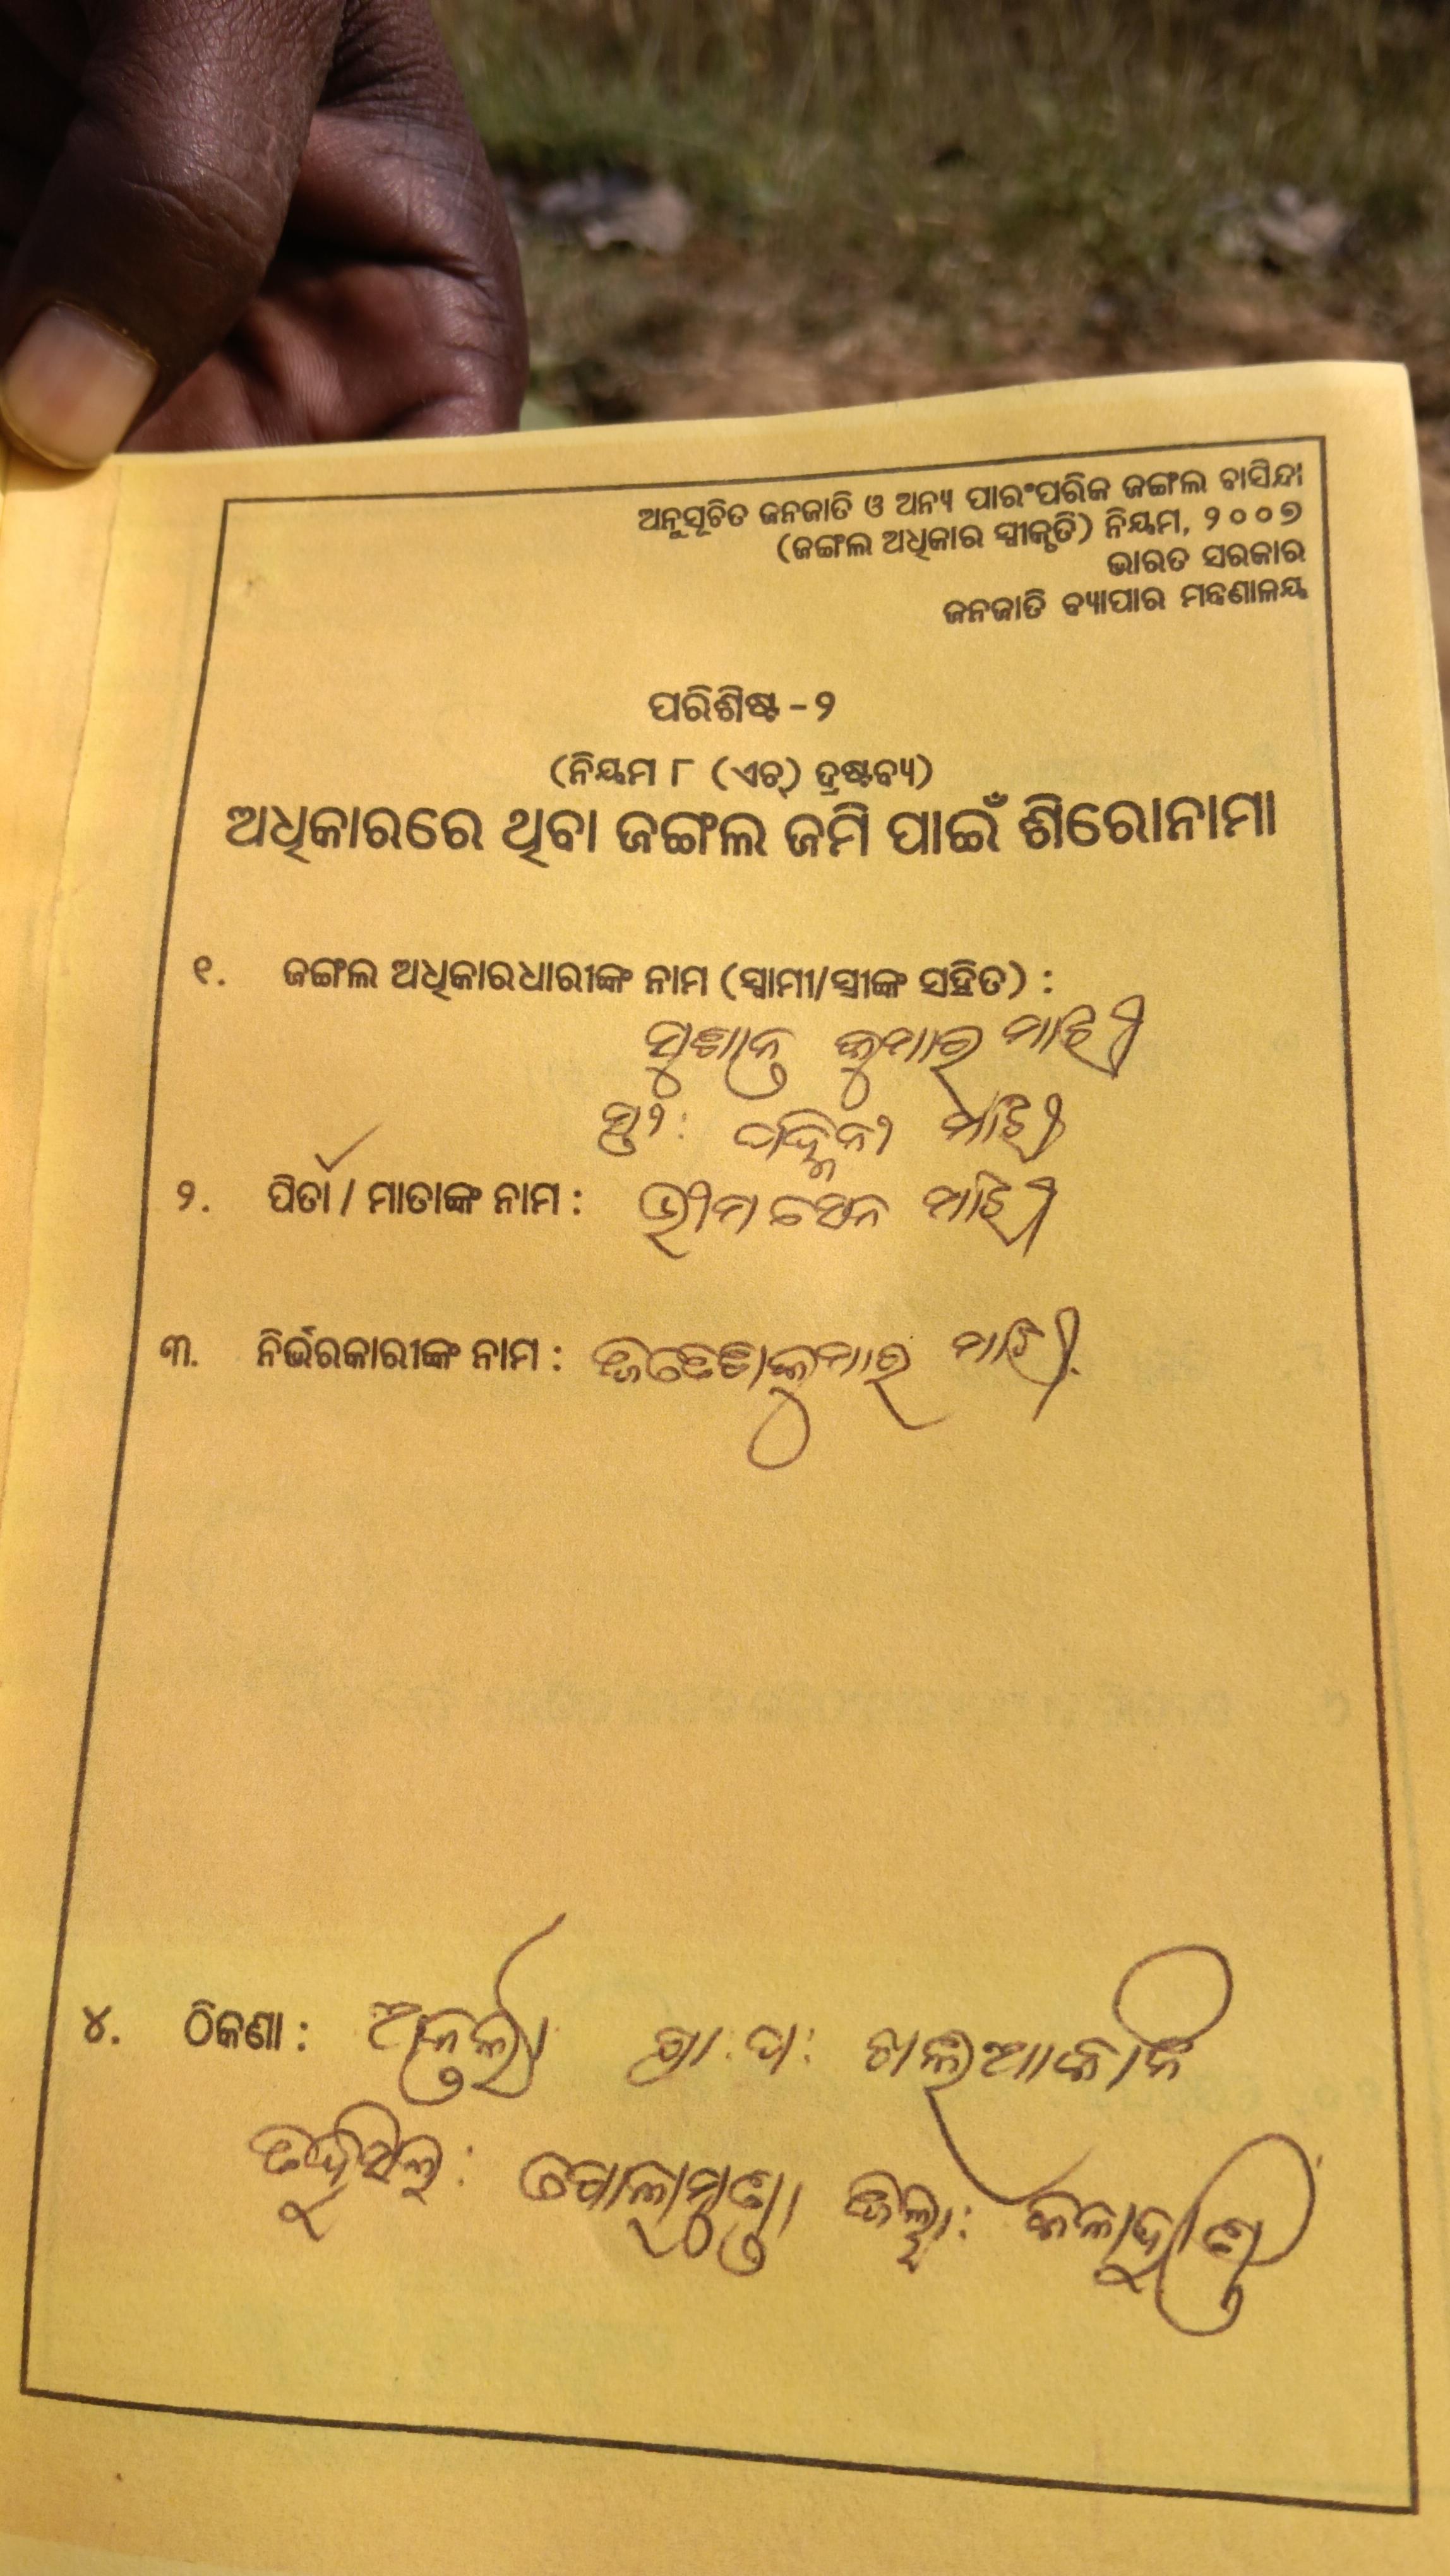 ଅନୁସୂଚିତ ଜନଜାତି ଓ ଅନ୍ୟ ପାରଂପରିକ ଜଙ୍ଗଲ ବାସିନ୍ଦା
(ଜଙ୍ଗଲ ଅଧିକାର ସ୍ୱୀକୃତି) ନିୟମ, ୨୦୦୭
ଭାରତ ସରକାର
ଜନଜାତି ବ୍ୟାପାର ମନ୍ତ୍ରଣାଳୟ
ପରିଶିଷ୍ଟ - ୨
(ନିୟମ ୮ (ଏଚ୍) ଦ୍ରଷ୍ଟବ୍ୟ)
ଅଧିକାରରେ ଥିବା ଜଙ୍ଗଲ ଜମି ପାଇଁ ଶିରୋନାମା
୧. ଜଙ୍ଗଲ ଅଧିକାରଧାରୀଙ୍କ ନାମ (ସ୍ୱାମୀ/ସ୍ତ୍ରୀଙ୍କ ସହିତ) :
ସୁଶାନ୍ତ କୁମାର ମାଝୀ
ସ୍ତ୍ରୀ: ପଦ୍ମିନୀ ମାଝୀ
୨. ପିତା / ମାତାଙ୍କ ନାମ : ଭୀମସେନ ମାଝୀ
୩. ନିର୍ଭରକାରୀଙ୍କ ନାମ : କୁମାର ମାଝୀ
୪. ଠିକଣା : ଗ୍ରା.ପ:
ତହସିଲ: ଗୋଲାମୁଣ୍ଡା ଜିଲ୍ଲା: କଳାହାଣ୍ଡି